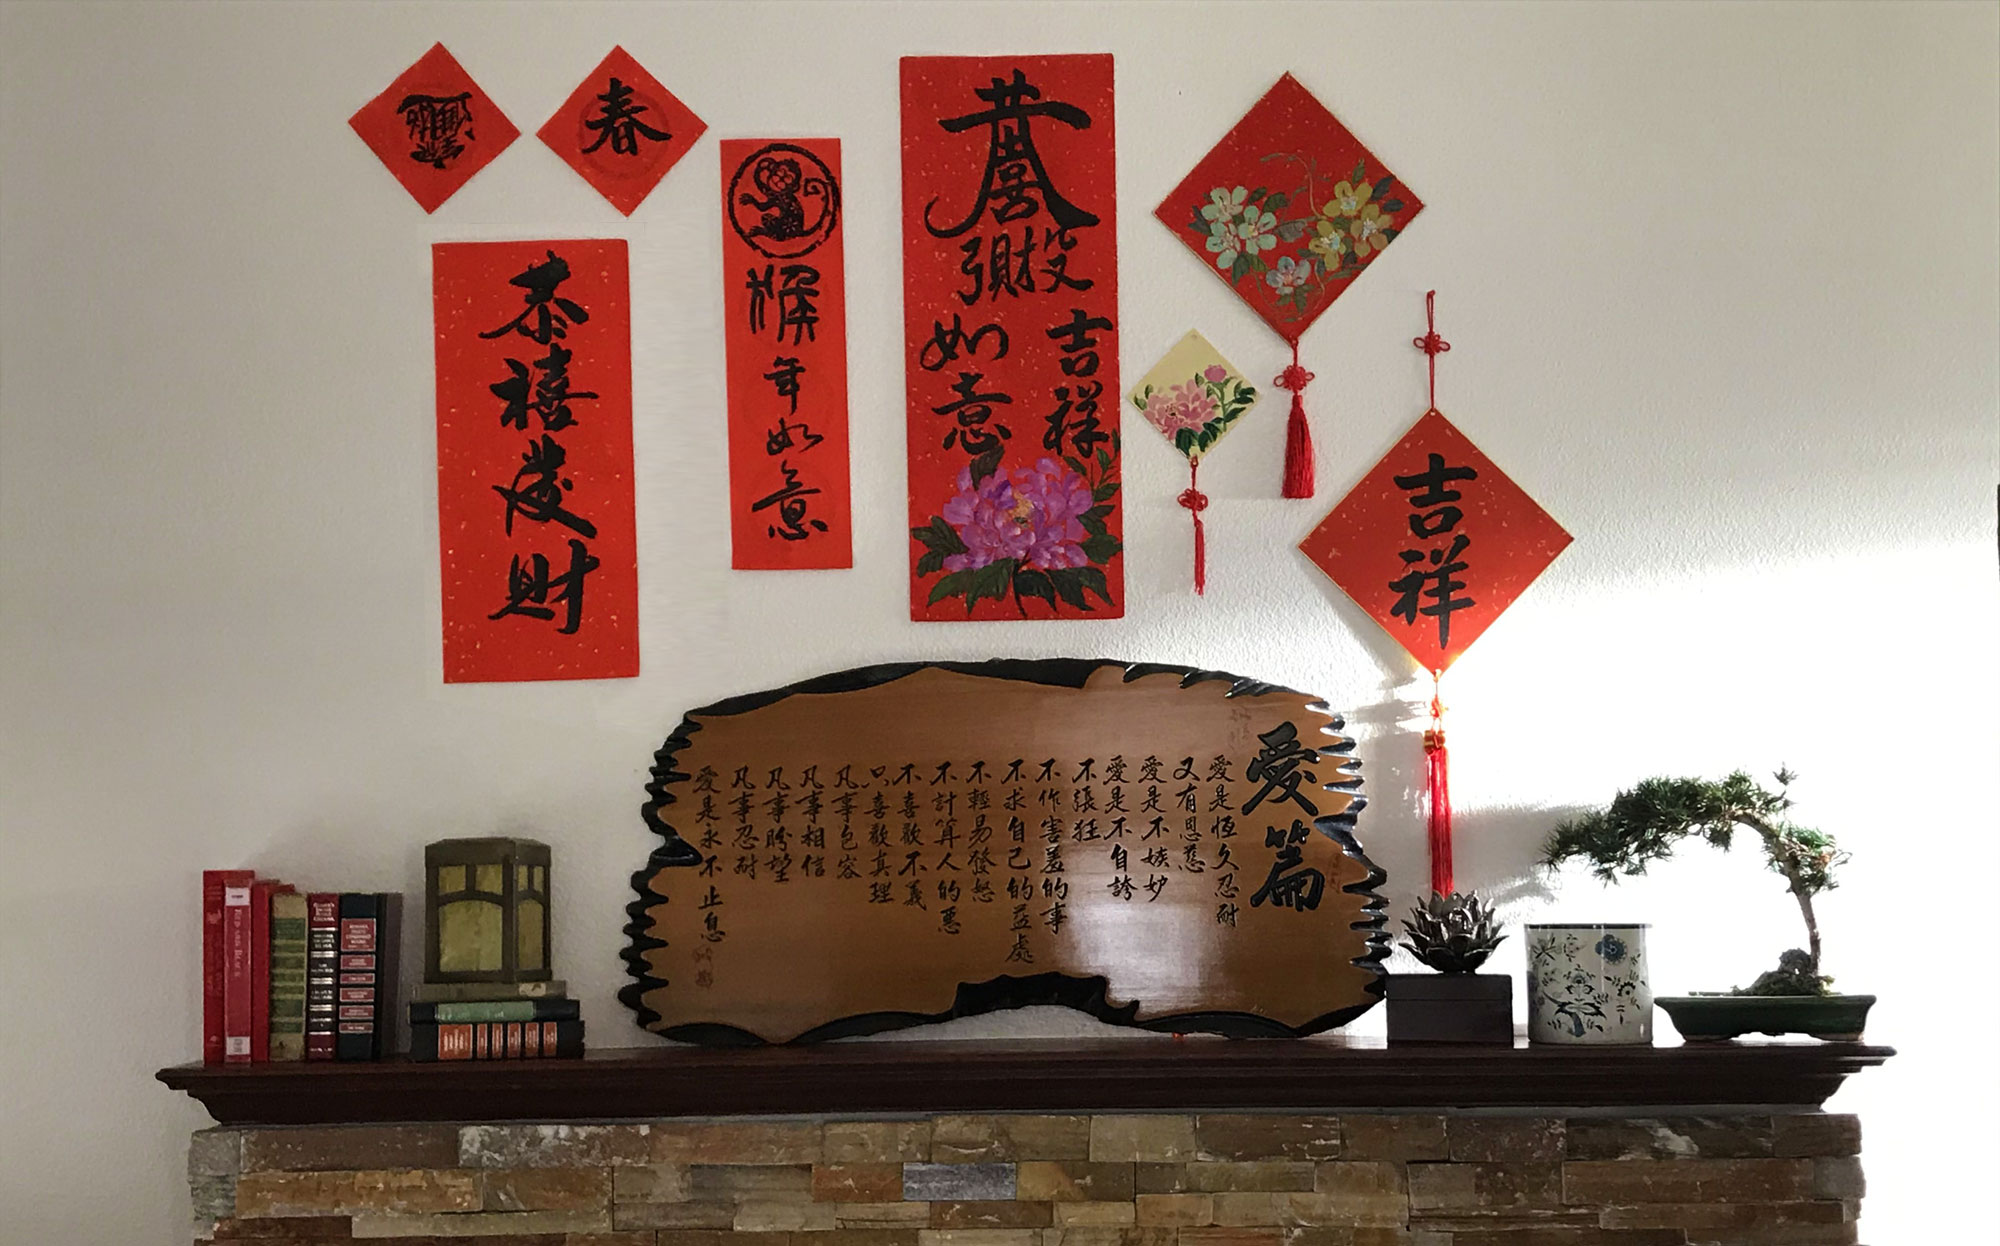 春
恭禧發財
猴年如意
吉祥
如意
吉祥
愛篇
愛是恆久忍耐
又有恩慈
愛是不嫉妒
愛是不自誇
不張狂
不作害羞的事
不求自己的益處
不輕易發怒
不計算人的惡
不喜歡不義
只喜歡真理
凡事包容
凡事相信
凡事盼望
凡事忍耐
愛是永不止息